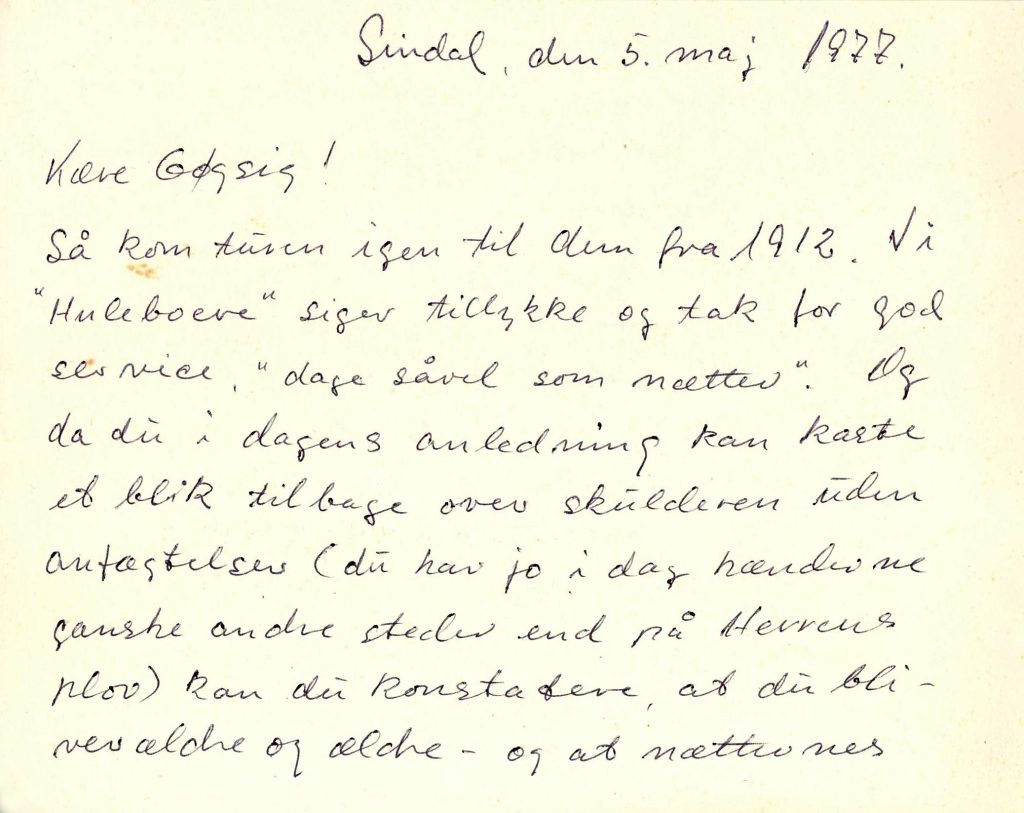 Sindal, den 5. maj 1977.
Kære Gøgsig!
Så kom turen igen til dem fra 1912. Vi
"Huleboere" siger tillykke og tak for god
service, "dage såvel som nætter". Og
da du i dagens anledning kan kaste
et blik tilbage over skulderen uden
anfægtelser (du har jo i dag hænderne
ganske andre steder end på Herrens
plov) kan du konstatere, at du bli-
ver ældre og ældre - og at nætternes